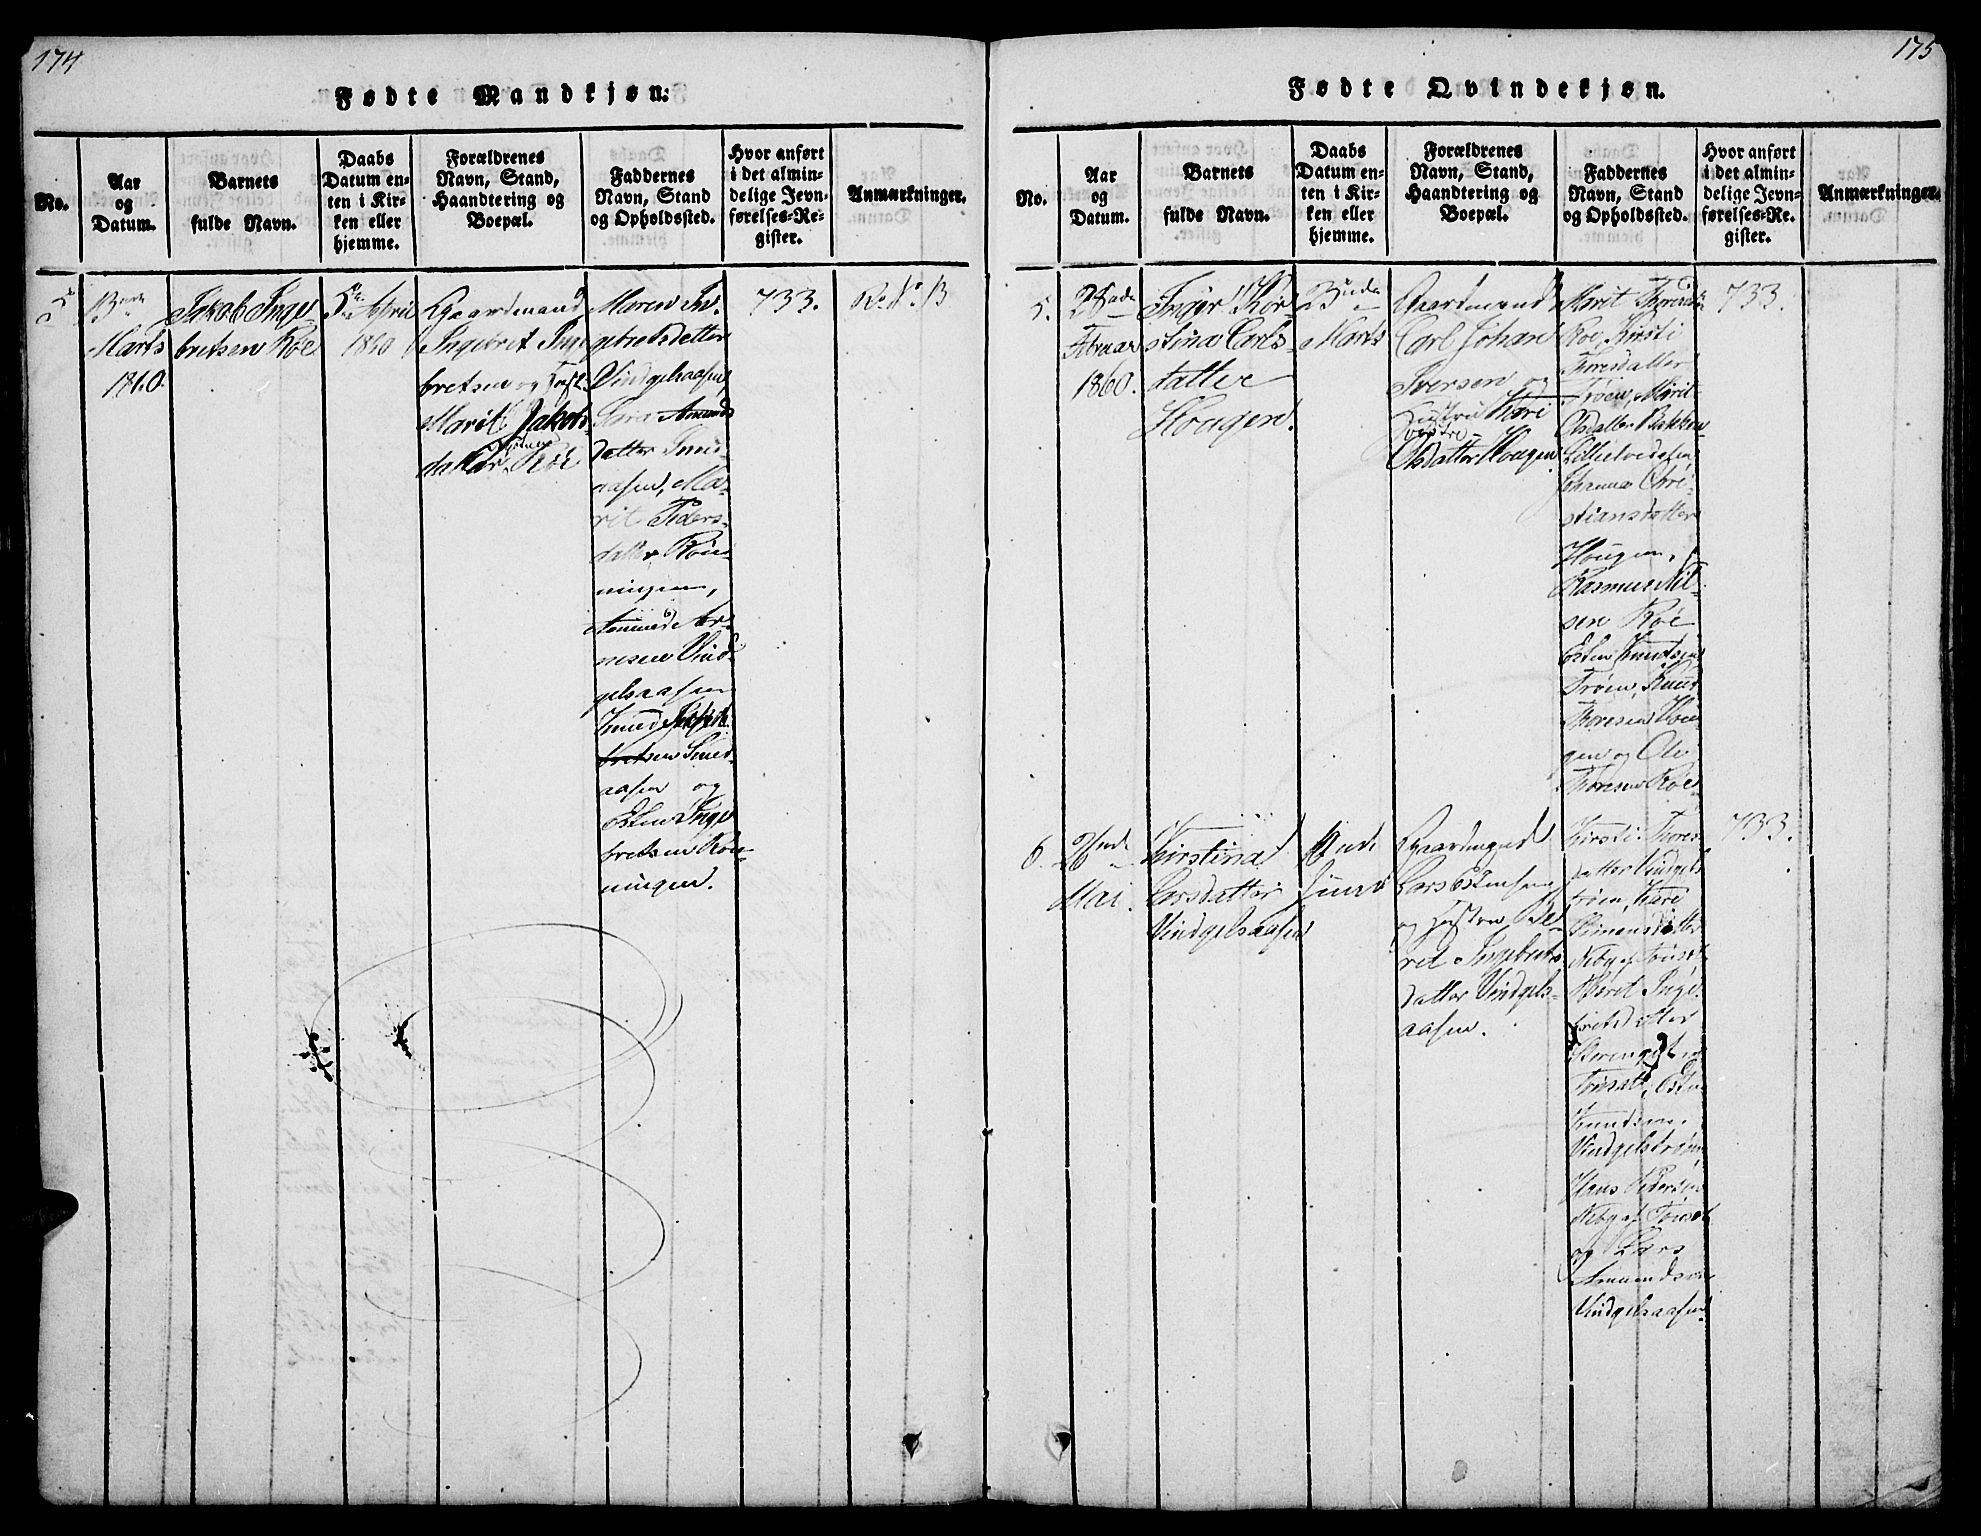 174
Fødte Mandkjøn:
No.
Aar
og
Datum.
Barnets
fulde Navn.
Daabs
Datum en-
ten i Kir-
ken eller
hjemme.
Forældrenes
Navn, Stand,
Haandtering og
Boepæl.
Faddernes
Navn, Stand
og Opholdssted.
Hvor anført
i det almin-
delige Jevn-
førelses-Re-
gister.
Anmærkninger.
5
13de
Marts
1860.
Jakob Inge
bretsen Röe
5te April
1860
Gaardmand
Ingebret Inge
bretsen og
Marit Jakobs-
datter Röe
Maren In-
gebretsdatter
Vindgelsaasen
Amunds
datter Smed-
aasen, Ma-
rit Peders-
datter Rön-
ningen,
Amund Ar-
nesen Vind-
gelsaasen
Knud
bretsen Smed-
aasen og
Esten Inge
bretsen Rön-
ningen.
733.
175
Fødte Qvindekjøn.
No.
Aar
og
Datum.
Barnets
fulde Navn.
Daabs
Datum en-
ten i Kir-
ken eller
hjemme.
Forældrenes
Navn, Stand,
Haandtering og
Boepæl.
Faddernes
Navn, Stand
og Opholdssted.
Hvor anført
i det almin-
delige Jevn-
førelses-Re-
gister.
Anmærkninger.
5.
28de
Februar
1860.
Inger Kor-
stina Carls-
datter
Hougen.
Marts
Gaardmand
Carl Johan
Iversen og
Hustru Kari
Olsdatter Hougen
Marit Thores
Röe, Kirsti
Thoresdatter
Tröen, Marit
Olsdatter Bakken
Johanna Chri-
stiansdatter
Hougen,
Rasmus Nil-
sen Röe
Esten Knudsen
Tröen, Knud
Thoresen Hou-
gen og Ole
Thoresen Röe
733.
6.
Mai.
Kirstina
Larsdatter
Vindgelsaasen
Juni
Gaardmand
Lars Estensen
og Hustru Be-
ret Ingebrets
datter Vindgels-
aasen.
Kirsti Thores
datter Vindgels
tröen, Kari
Simensdatter
Neby af Tönset
Marit Inge-
bretsdatter
Tönset, Esten
Knudsen
Vindgelströen
Hans Pedersen
Neby af Tönset
og Lars
Amundsen
Vindgelsaasen.
733.